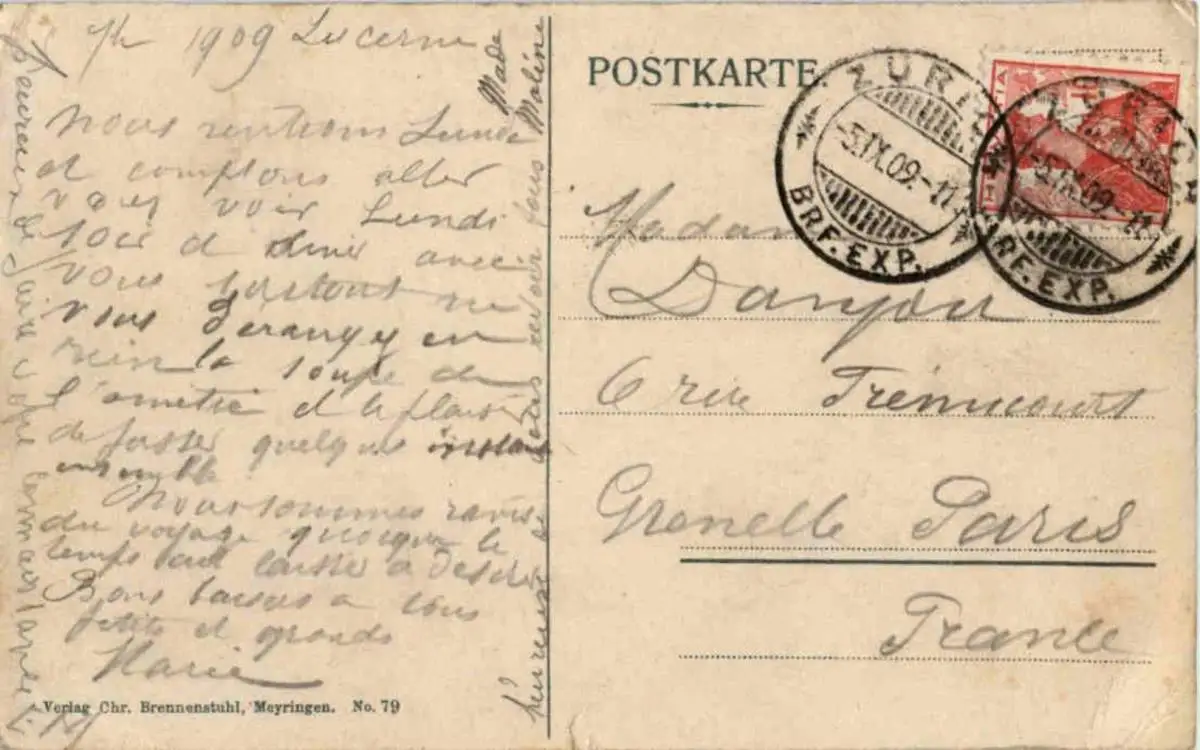 7bre 1909 Lucerne
Nous rentrons Lundi
et comptons aller
vous voir Lundi
soir et diner avec
vous surtout ne
vous derangez en
rien la soupe de
l'amitié et le plaisir
de passer quelques instants
ensemble
Nous sommes ravis
du voyage quoique le
temps ait laissé à désirer
Bons baisers à tous
petits et grands
Marie
heureuse de vous revoir tous
Made Moline
heureux de faire votre connaissance
POSTKARTE.
ZÜRICH
-5.IX.09.-11
BRF. EXP.
ZÜRICH
-5.IX.09.-11
BRF. EXP.
HELVETIA
10
Madame
Danjou
6 rue Frémicourt
Grenelle Paris
France
Verlag Chr. Brennenstuhl, Meyringen. No. 79